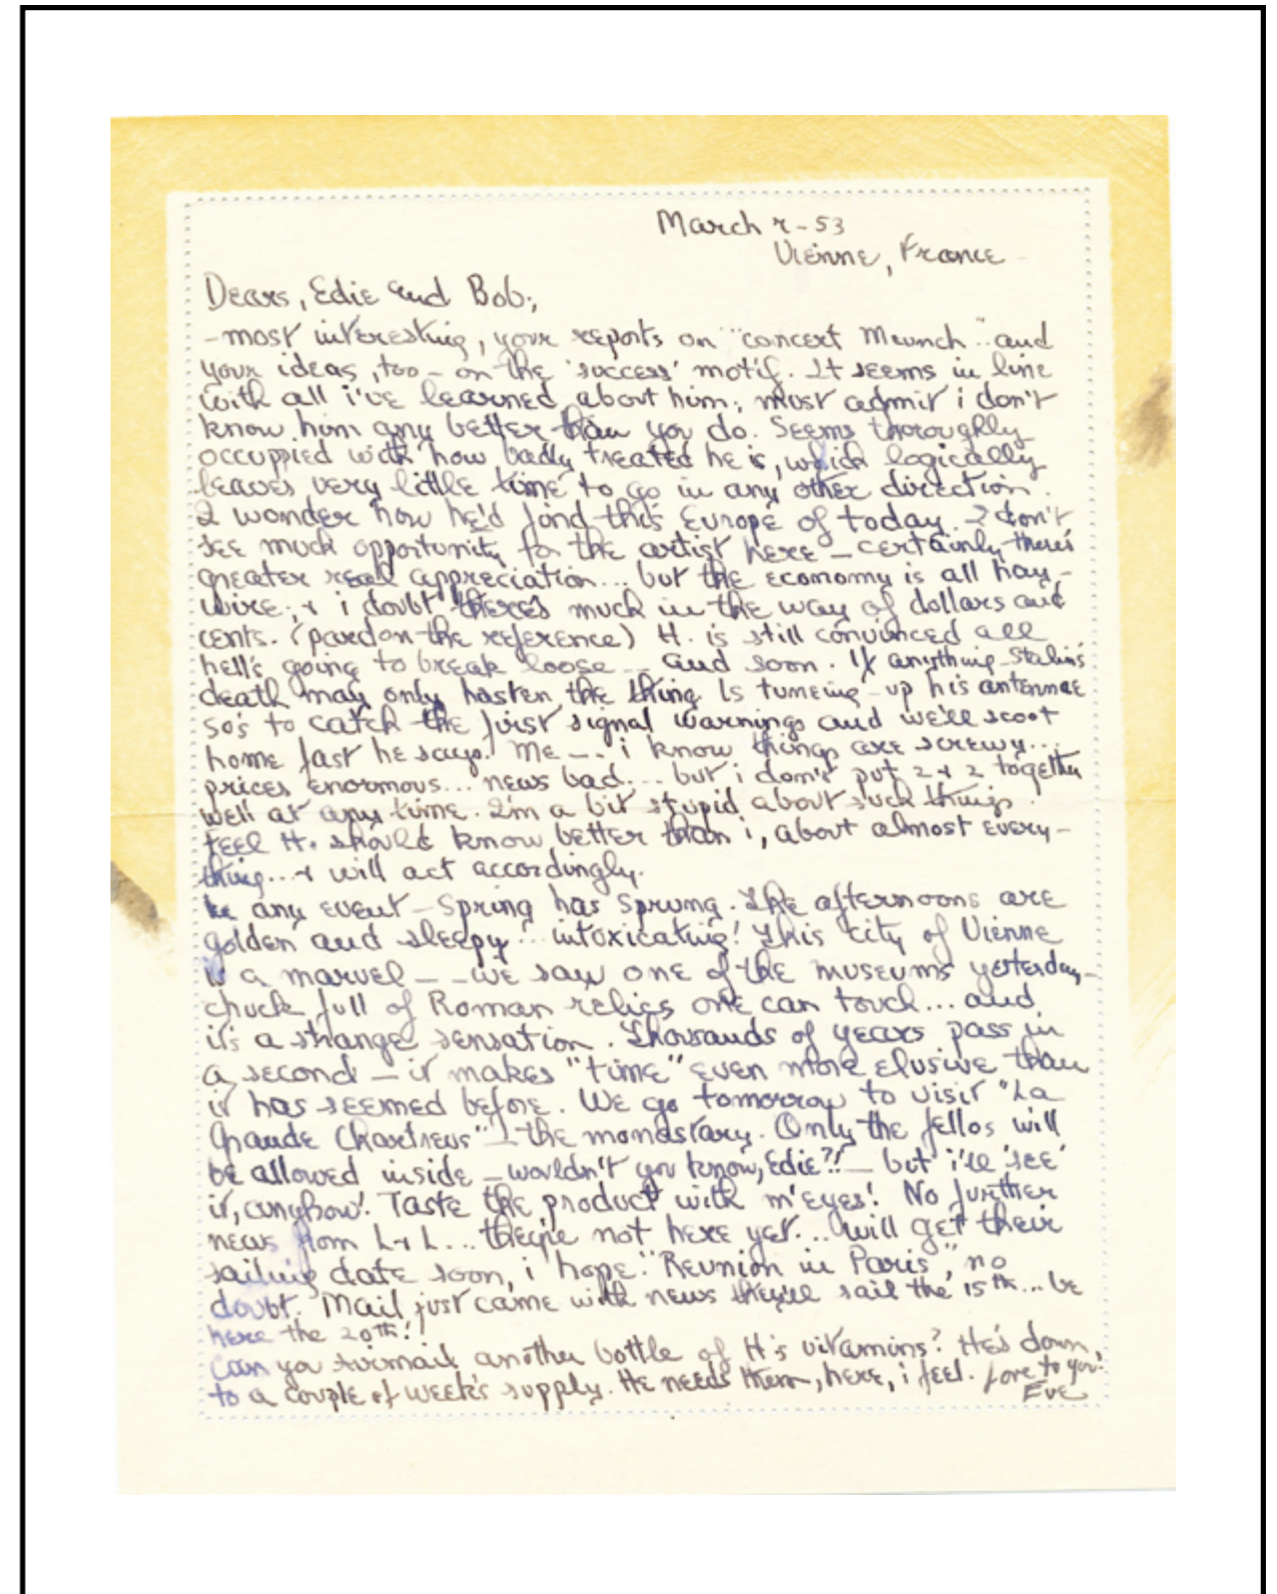 March 7-53
Vienne, France
Dears, Edie and Bob;
-most interesting, your reports on "concert Meunch" and
your ideas, too - on the 'success' motif. It seems in line
with all i've learned about him; must admit i don't
know him any better than you do. Seems thoroughly
occupied with how badly treated he is, which logically
leaves very little time to go in any other direction.
I wonder how he'd find this Europe of today. I don't
see much opportunity for the artist here - certainly there's
greater real appreciation... but the economy is all hay-
wire, & i doubt there's much in the way of dollars and
cents. (pardon the reference) H. is still convinced all
hell's going to break loose - and soon. If anything Stalin's
death may only hasten the thing Is tuneing up his antennae
so's to catch the first signal warnings and we'll scoot
home fast he says! Me -- i know things are screwy...
prices enormous... news bad... but i don't put 2 & 2 together
well at any time. I'm a bit stupid about such things.
Feel H. should know better than i, about almost every-
thing... & will act accordingly.
In any event - Spring has sprung. The afternoons are
golden and sleepy... intoxicating! This city of Vienne
is a marvel -- we saw one of the museums yesterday,-
chuck full of Roman relics one can touch... and
it's a strange sensation. Thousands of years pass in
a second - it makes "time" even more elusive than
it has seemed before. We go tomorrow to visit "La
Grande Chartreus" - the monastary. Only the fellos will
be allowed inside - wouldn't you know, Edie?! - but i'll 'see'
it, anyhow! Taste the product with m'eyes! No further
news from L & L... they're not here yet... will get their
sailing date soon, i hope. "Reunion in Paris", no
doubt. Mail just came with news they'll sail the 15th... be
here the 20th!!
Can you airmail another bottle of H's vitamins? He's down,
to a couple of week's supply. He needs them, here, i feel. Love to you!
Eve